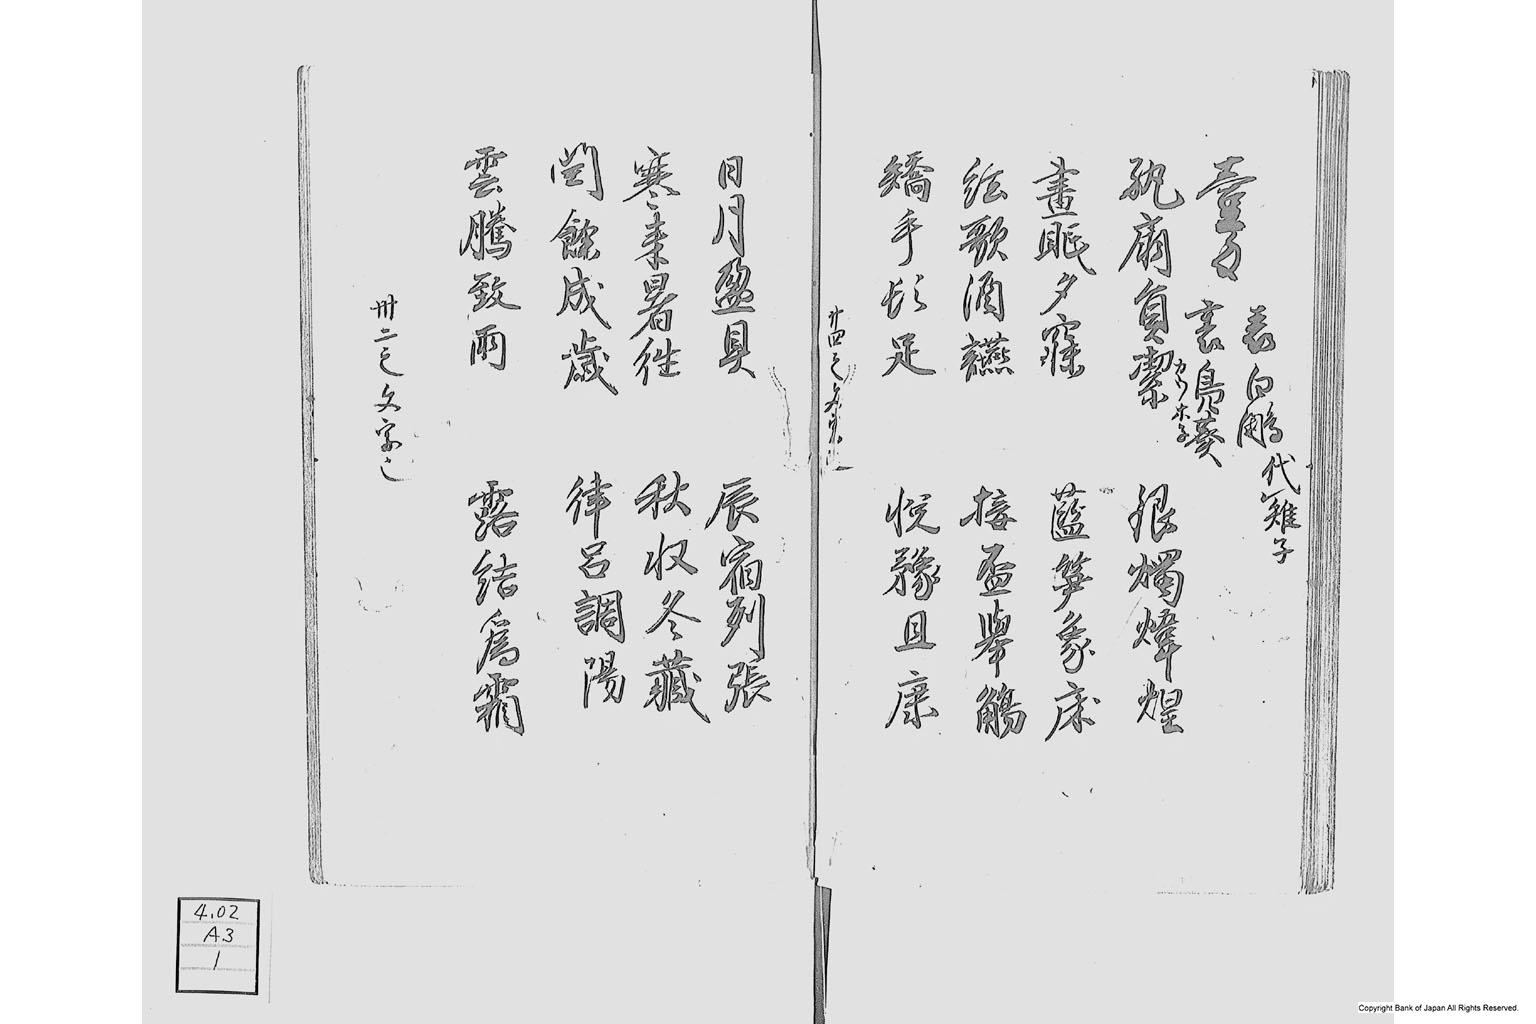 表 白鷴 代雉子
裏 鳥葵
紈扇負潔 銀燭煒煌
晝眠夕寐 藍笋象床
絃歌酒讌 接盃舉觴
矯手頓足 悦豫且康
廿四之文字
日月盈昃 辰宿列張
寒来暑往 秋収冬藏
閏餘成歲 律呂調陽
雲騰致雨 露結爲霜
卅二之文字
4.02
A3
1
Copyright Bank of Japan All Rights Reserved.